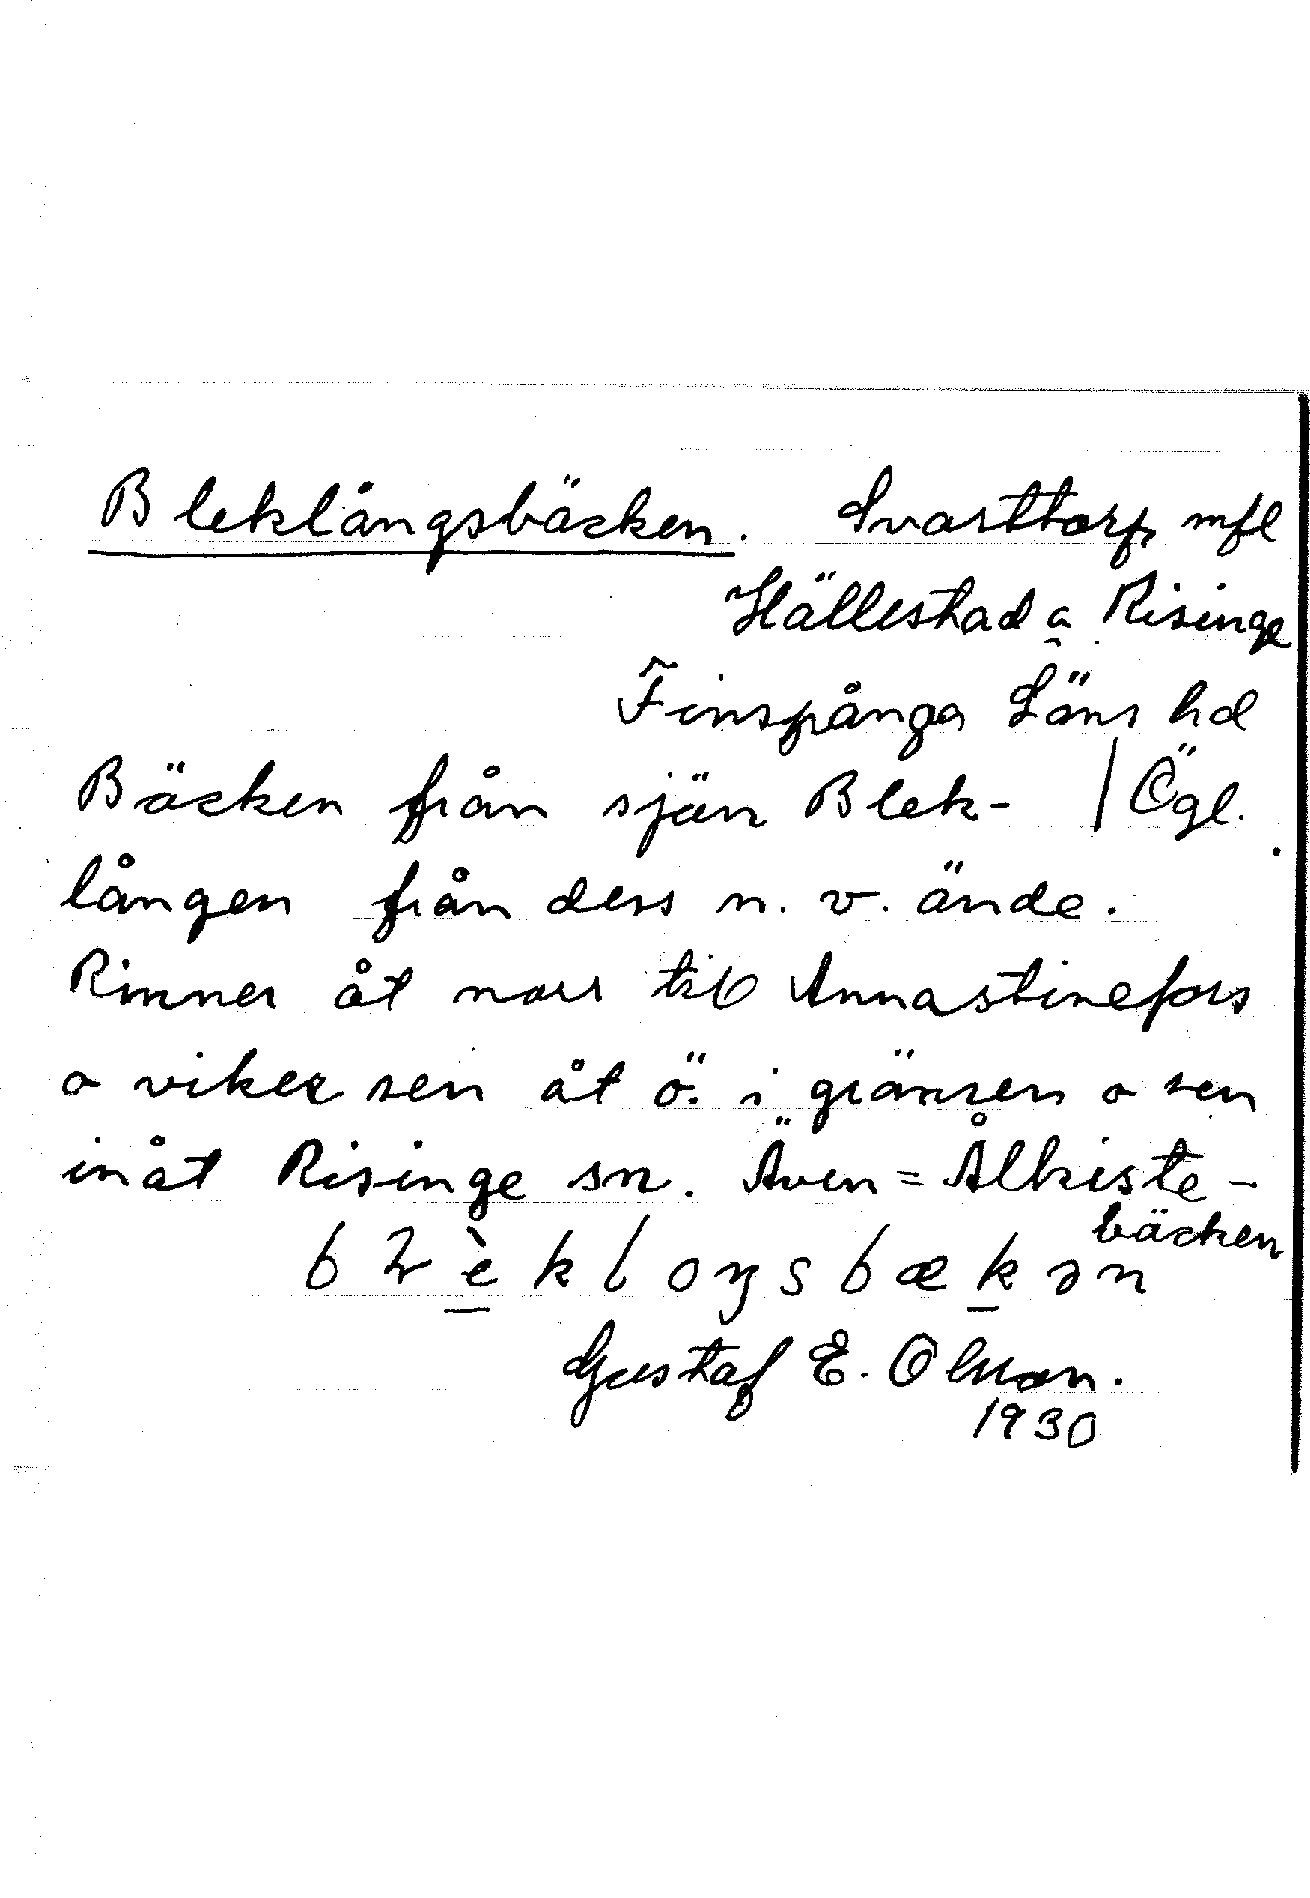 Bleklångsbäcken. Svarttorp mfl
Hällestad o Risinge
Finspånga Läns hd
Bäcken från sjön Blek- / Ögl.
lången från dess n. v. ände.
Rinner åt norr till Annastinefors
o viker sen åt ö. i gränsen o sen
inåt Risinge sn. Även = Ålkiste-
bäcken
Gustaf E. Olsson.
1930